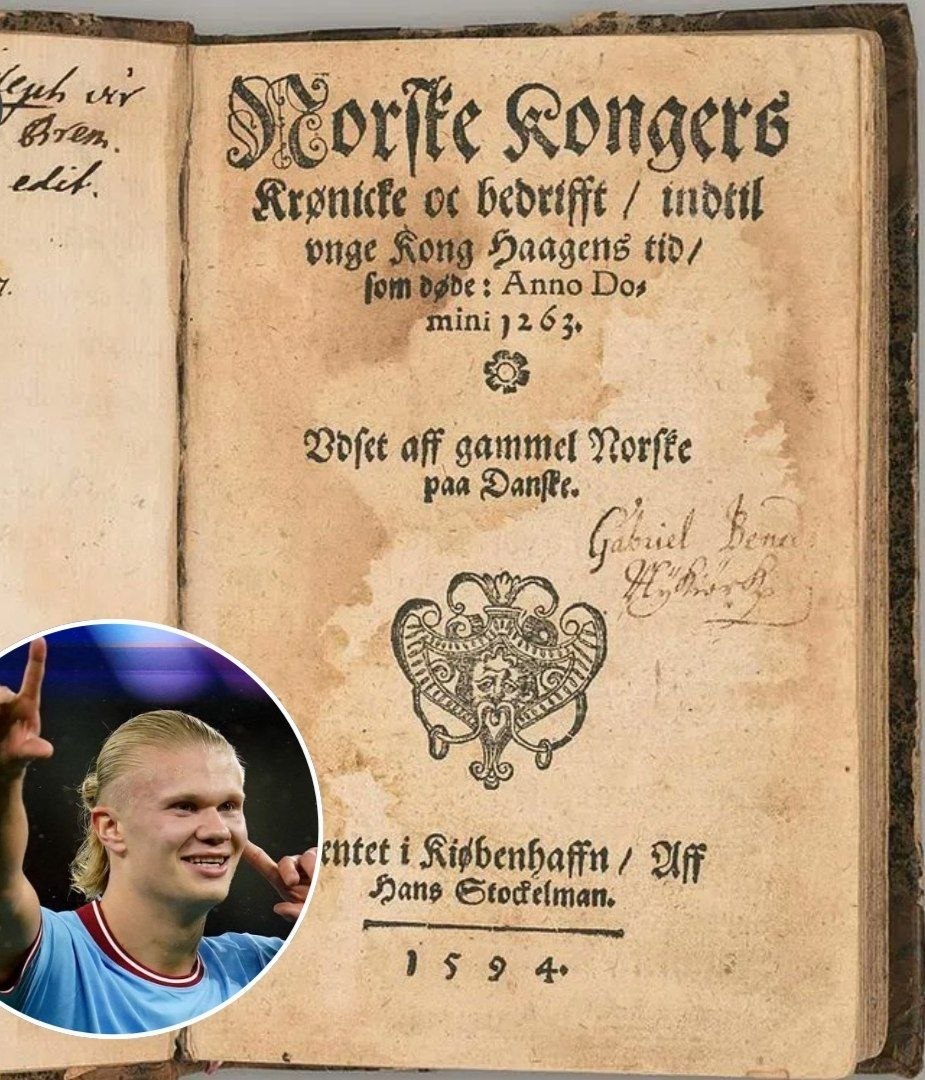 vir
Brem.
edit.
7.
Norske Kongers
Krønicke oc bedrifft / indtil
vnge Kong Haagens tid /
som døde: Anno Do⸗
mini 1263.
Vdset aff gammel Norske
paa Danske.
Gabriel
entet i Kiøbenhaffn / Aff
Hans Stockelman.
1594.